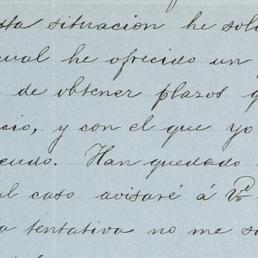 sta situacion he sol
ual he ofrecido un
de obtener plazos q
cio, y con el que yo
eudo. Han quedado
al caso avisaré á Vd
a tentativa no me s